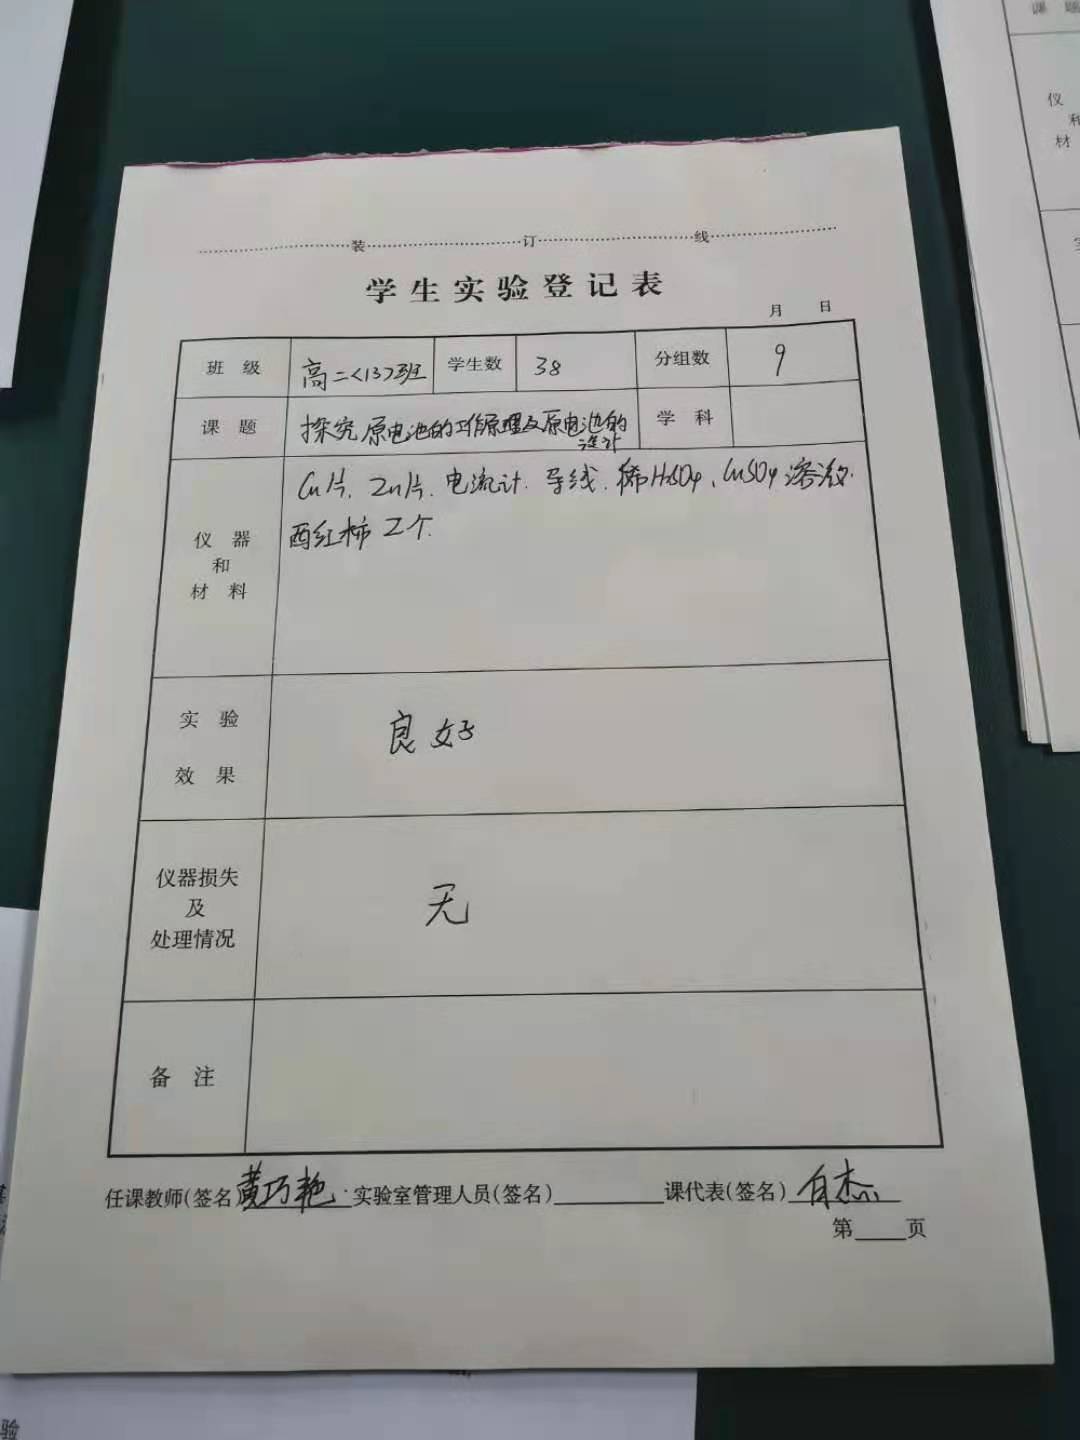 装 订 线
学生实验登记表
月 日
班 级 高二<13>班 学生数 38 分组数 9
课 题 探究原电池的工作原理及原电池的设计 学 科
仪 器 和 材 料 Cu片、Zn片、电流计、导线、稀H2SO4、CuSO4溶液.
西红柿 2个.
实 验 效 果 良好
仪器损失 及 处理情况 无
备 注
任课教师(签名)黄巧艳 实验室管理人员(签名) 课代表(签名) 白杰
第 页
课 题
仪
和
材
验